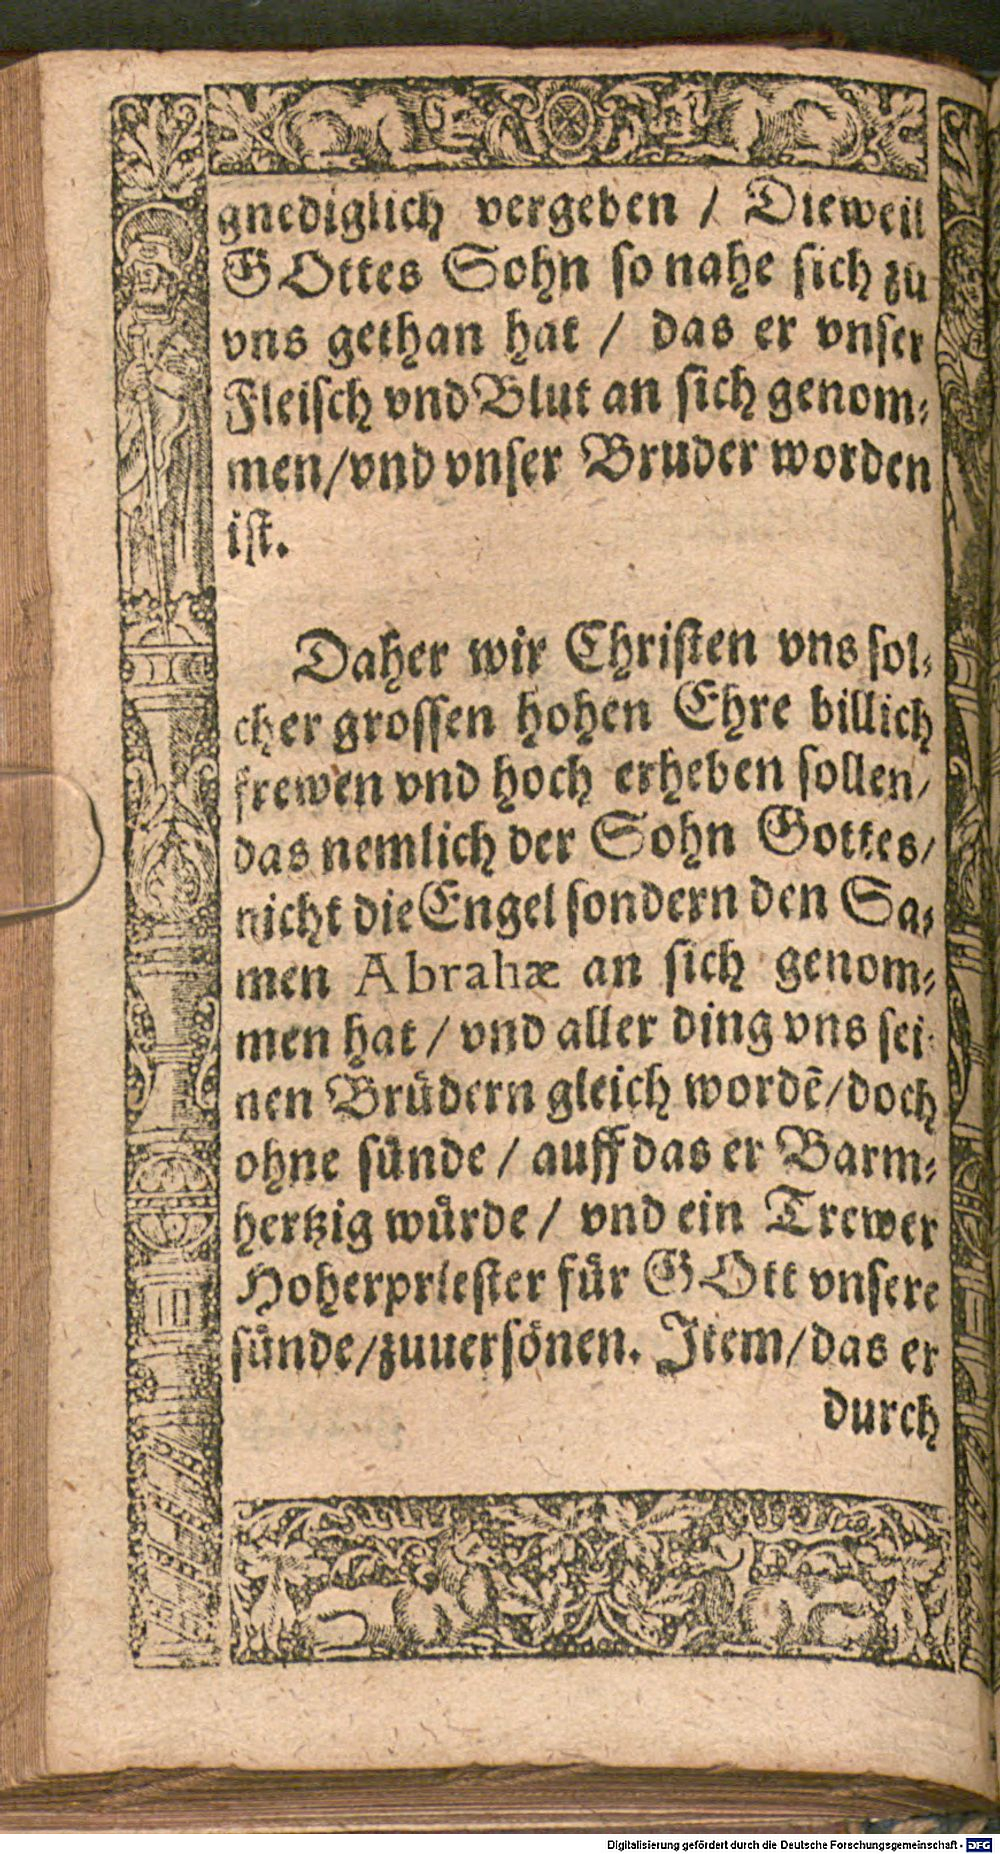 gnediglich vergeben / Dieweil
GOttes Sohn so nahe sich zu
vns gethan hat / das er vnser
Fleisch vnd Blut an sich genom⸗
men/vnd vnser Bruder worden
ist.
Daher wir Christen vns sol⸗
cher grossen hohen Ehre billich
frewen vnd hoch erheben sollen/
das nemlich der Sohn Gottes/
nicht die Engel sondern den Sa⸗
men Abrahæ an sich genom⸗
men hat / vnd aller ding vns sei⸗
nen Brüdern gleich wordē/doch
ohne sünde / auff das er Barm⸗
hertzig würde / vnd ein Trewer
Hoherpriester für GOtt vnsere
sünde/zuuersönen. Item/das er
durch
Digitalisierung gefördert durch die Deutsche Forschungsgemeinschaft - DFG